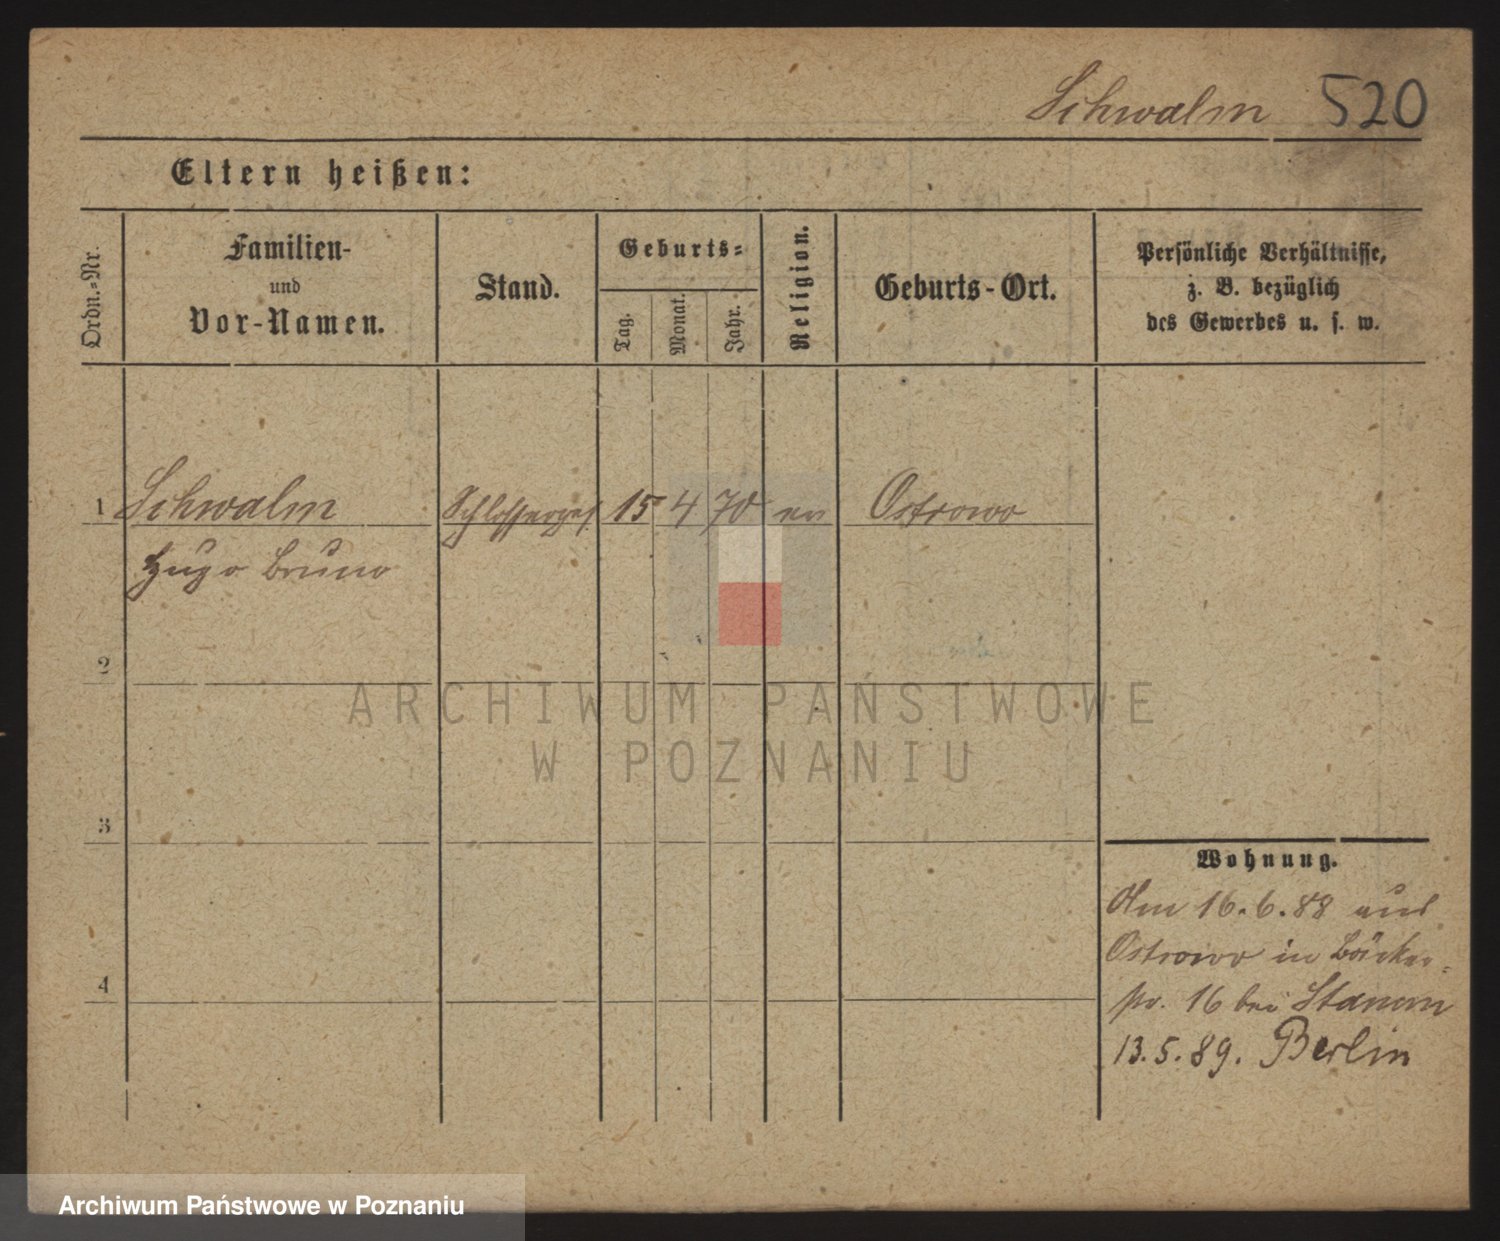 Schwalm 520
Eltern heißen:
Ordn.-Nr.
Familien-
und
Vor-Namen.
Stand.
Geburts-
Tag.
Monat.
Jahr.
Religion.
Geburts-Ort.
Persönliche Verhältnisse,
z. B. bezüglich
des Gewerbes u. s. w.
1 Schwalm Schlosserges 15 4 70 ev Ostrowo
Hugo Bruno
2
ARCHIWUM PAŃSTWOWE
W POZNANIU
3
Wohnung.
Am 16.6.88 aus
Ostrowo in Bäcker-
str. 16 bei
4
13.5.89. Berlin
Archiwum Państwowe w Poznaniu